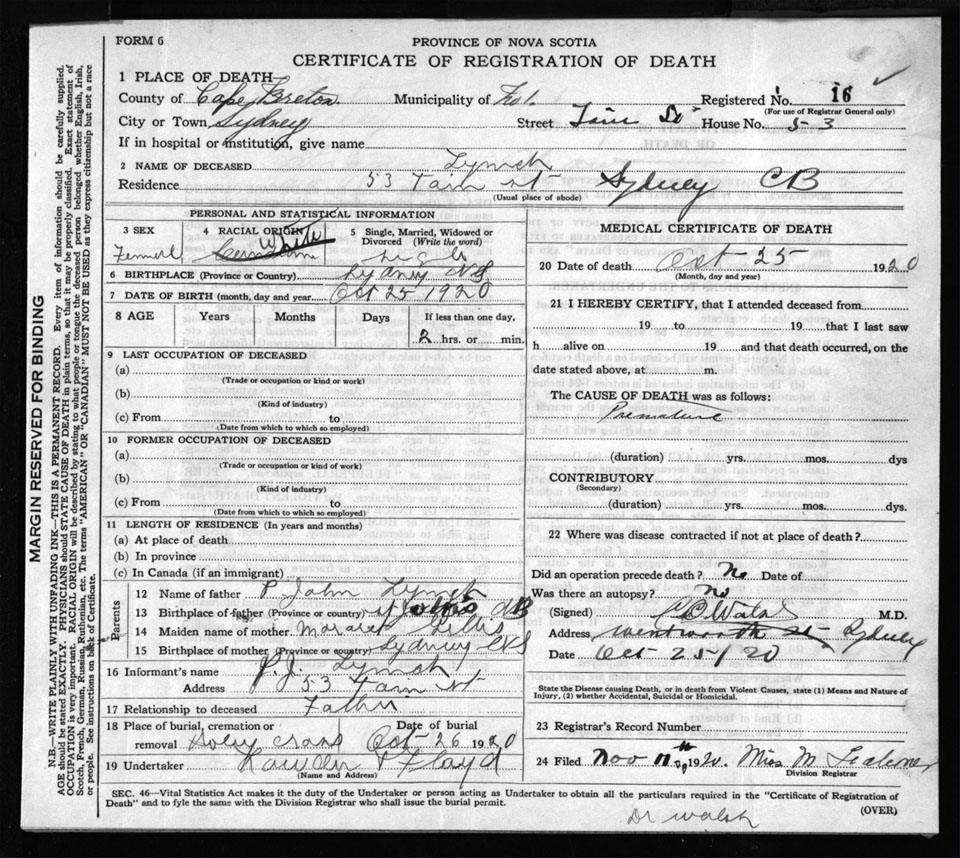 FORM 6
PROVINCE OF NOVA SCOTIA
CERTIFICATE OF REGISTRATION OF DEATH
1 PLACE OF DEATH—
County of Cape Breton Municipality of Registered No. 16
(For use of Registrar General only)
City or Town Sydney Street House No. 53
If in hospital or institution, give name
2 NAME OF DECEASED Lynch
Residence 53 Tain St Sydney CB
(Usual place of abode)
PERSONAL AND STATISTICAL INFORMATION
3 SEX
4 RACIAL ORIGIN White
5 Single, Married, Widowed or Divorced (Write the word)
6 BIRTHPLACE (Province or Country) Sydney NS
7 DATE OF BIRTH (month, day and year) Oct 25 1920
8 AGE Years Months Days If less than one day,
2 hrs. or min.
9 LAST OCCUPATION OF DECEASED
(a)
(Trade or occupation or kind or work)
(b)
(Kind of industry)
(c) From to
(Date from which to which so employed)
10 FORMER OCCUPATION OF DECEASED
(a)
(Trade or occupation or kind of work)
(b)
(Kind of industry)
(c) From to
(Date from which to which so employed)
11 LENGTH OF RESIDENCE (In years and months)
(a) At place of death
(b) In province
(c) In Canada (if an immigrant)
Parents
12 Name of father P. John Lynch
13 Birthplace of father (Province or country) CB
14 Maiden name of mother
15 Birthplace of mother (Province or country) Sydney NS
16 Informant's name P.J. Lynch
Address 53 Tain St
17 Relationship to deceased Father
18 Place of burial, cremation or removal Holy Cross Date of burial Oct 26 1920
19 Undertaker
(Name and Address)
MEDICAL CERTIFICATE OF DEATH
20 Date of death Oct 25 1920
(Month, day and year)
21 I HEREBY CERTIFY, that I attended deceased from
19 to 19 that I last saw
h alive on 19 and that death occurred, on the
date stated above, at m.
The CAUSE OF DEATH was as follows:
Premature
(duration) yrs. mos. dys
CONTRIBUTORY
(Secondary)
(duration) yrs. mos. dys.
22 Where was disease contracted if not at place of death?
Did an operation precede death? No Date of
Was there an autopsy? No
(Signed) M.D.
Address Wentworth St Sydney
Date Oct 25/20
State the Disease causing Death, or in death from Violent Causes, state (1) Means and Nature of
Injury, (2) whether Accidental, Suicidal or Homicidal.
23 Registrar's Record Number
24 Filed Nov 11th 1920. Miss M
Division Registrar
SEC. 46—Vital Statistics Act makes it the duty of the Undertaker or person acting as Undertaker to obtain all the particulars required in the "Certificate of Registration of
Death" and to fyle the same with the Division Registrar who shall issue the burial permit.
(OVER)
Dr Walsh
MARGIN RESERVED FOR BINDING
N.B.—WRITE PLAINLY WITH UNFADING INK—THIS IS A PERMANENT RECORD. Every item of information should be carefully supplied.
AGE should be stated EXACTLY. PHYSICIANS should STATE CAUSE OF DEATH in plain terms, so that it may be properly classified. Exact statement of
OCCUPATION is very important. RACIAL ORIGIN will be described by stating to what people or tongue the deceased person belonged whether English, Irish,
Scotch, French, German, Russian, Ruthenian, etc. The terms "AMERICAN" OR "CANADIAN" MUST NOT BE USED as they express citizenship but not a race
or people. See instructions on back of Certificate.